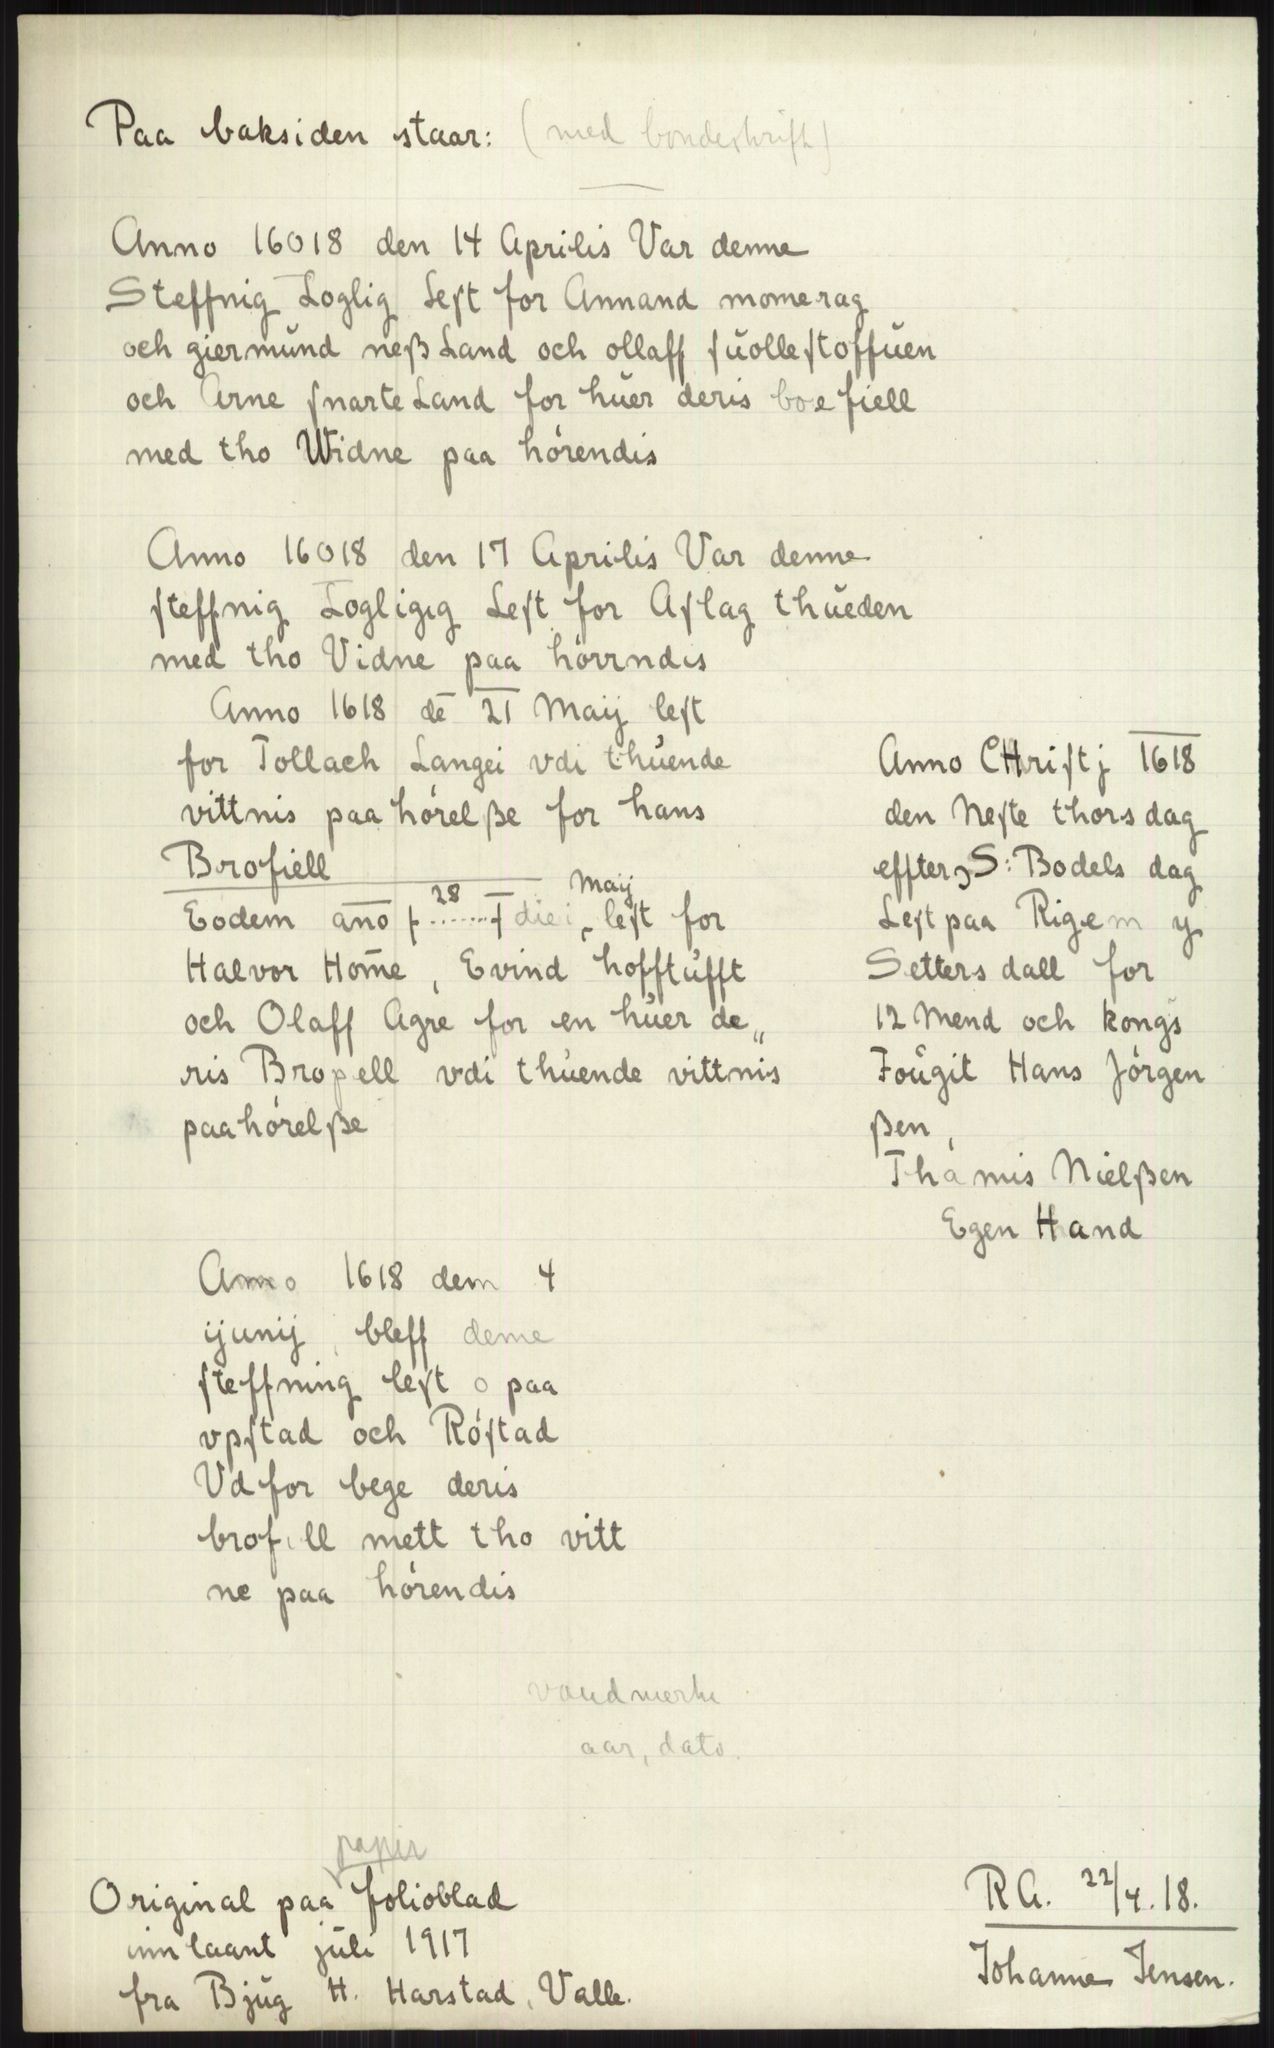 Paa baksiden staar: (med bondeskrift)
Anno 16018 den 14 Aprilis Var denne
Steffnig Loglig Lest for Annand momerag
och giermúnd neß Land och ollaff súollestoffúen
och Arne snarte Land for húer deris boefiell
med tho Widne paa hórendis
Anno 16018 den 17 Aprilis Var denne
steffnig Logligig Lest for Aslag thúeden
med tho Vidne paa hórrndis
Anno 1618 dē 21 Maij lest
for Tollach Langei vdi thúende
vittnis paa hórelße for hans
Brofiell
Eodem año ƒ ..28.. ƒ diei Maij lest for
Halvor Hom̄e, Evind hofftúfft
och Olaff Agre for en húer de„
ris Bropell vdi thúende vittnis
paahórelße
Anno CHristj 1618
den Neste thorsdag
effter S: Bodels dag
Lest paa Rigem y
Settersdall for
12 Mend och kongs
Foúgit Hans Jórgen
ßen,
Thámis Nielßen
Egen Hand
Anno 1618 dem 4
ijunij bleff denne
steffning lest o paa
vpstad och Róstad
Vd for bege deris
brof ll mett tho vitt
ne paa hórendis
vandmerke
aar, dato.
papir
Original paa folioblad
innlaant júli 1917
fra Bjúg H. Harstad, Valle.
R A. 22/4. 18.
Johanne Jensen.